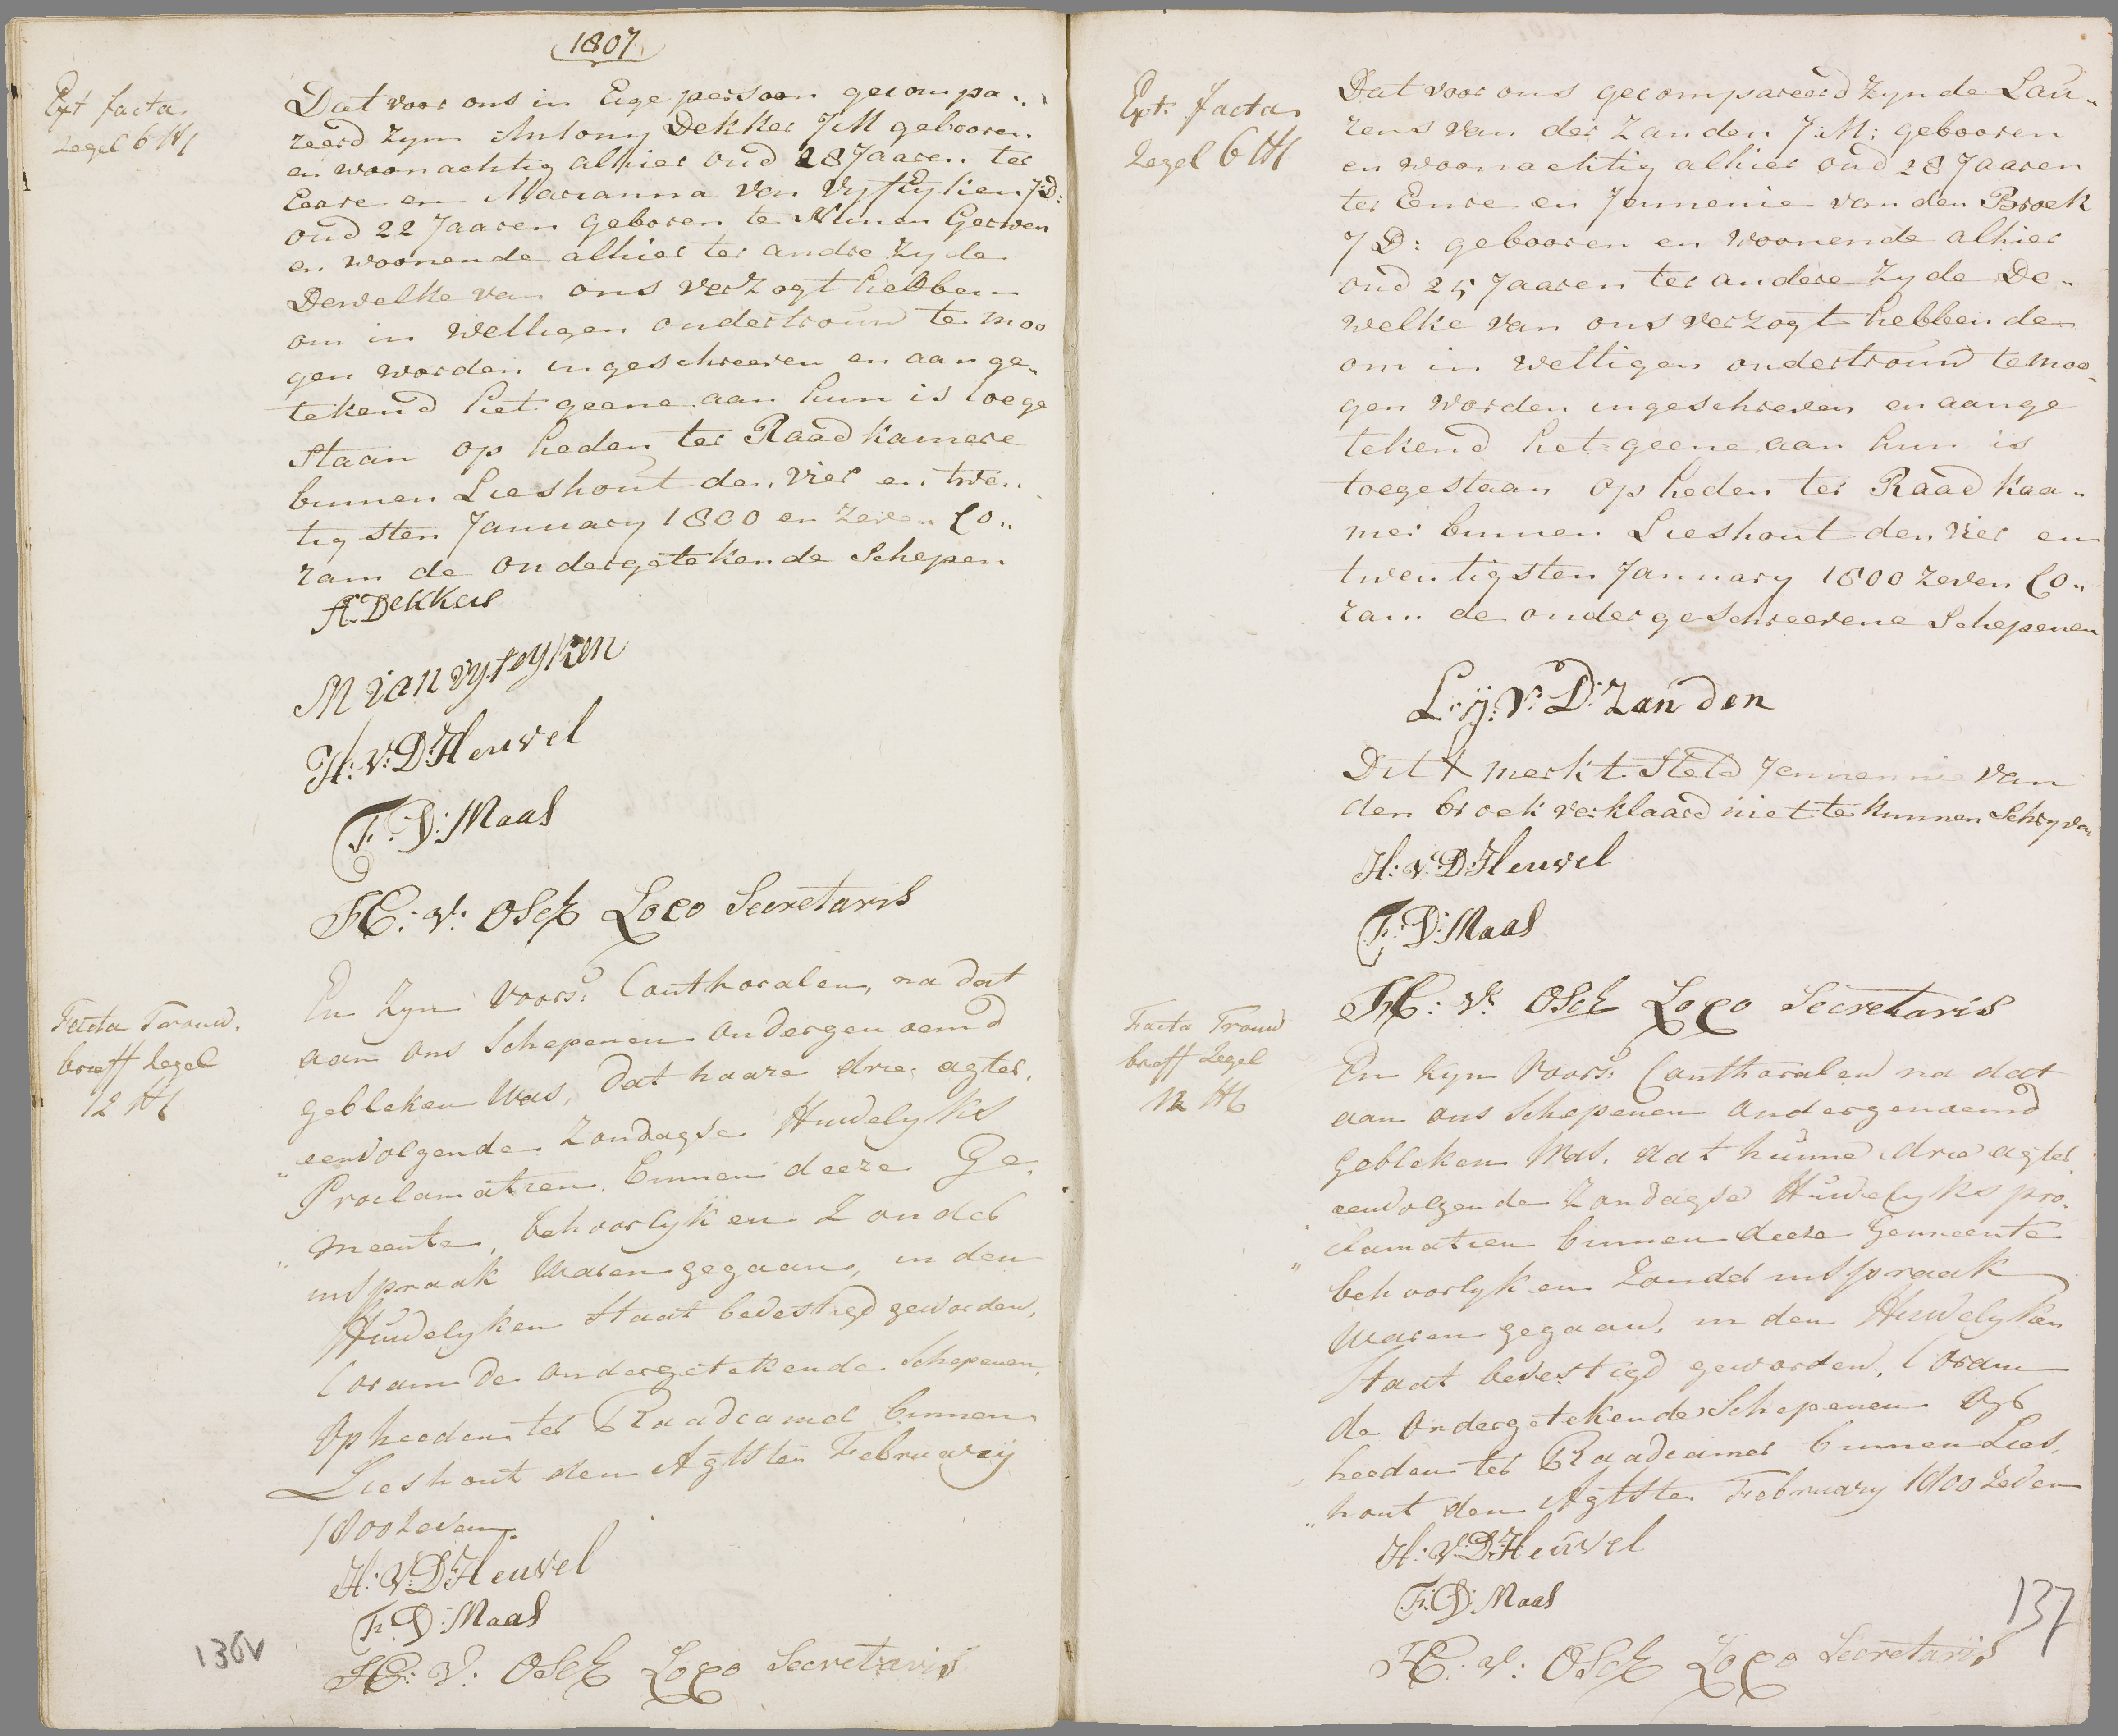 1807
Ext facta
Zegel 6 St
Dat voor ons in Eige persoon gecompa..
reerd zyn Antony Dekker J M gebooren
en woonachtig alhier oud 28 Jaaren ter
Eenre en Marianna van Vyfeyken J:D:
oud 22 Jaaren geboren te Nunen Gerwen
en woonende alhier ter andre Zyde
Dewelke van ons verzogt hebben
om in wettigen ondertrouw te moo
gen worden ingeschreeven en aan ge„
tekend het geene aan hun is toege
staan op heden ter Raad kamere
binnen Lieshout den vier en twen..
tigsten January 1800 en zeven Co..
ram de ondergetekende Schepen
A. Dekker
M van vyfeyken
H: V: D: Heuvel
F: D: Maas
H: V: Osch Loco Secretaris
Facta Trouw.
brieff Zegel
12 St
En Zyn voors: Conthoralen, na dat
aan ons Schepenen ondergenoemd
gebleken was, dat haare drie agter.
„eenvolgende Zondagse Huwelyks
Proclamatien, binnen deeze Ge.
„meente, behoorlyk en Zonder
inspraak waren gegaan, in den
Huwelyken Staat bevestigd geworden,
Coram de ondergetekende Schepenen,
op heeden ter Raadcamer binnen
Lieshout den Agtsten February
1800 Zeven.
H: V: D: Heuvel
F: D: Maas
H: V: Osch Loco Secretaris
136v
Ext. facta
Zegel 6 St
Dat voor ons gecompareerd zynde Lau„
rens van der Zanden J:M: gebooren
en woonachtig alhier oud 28 Jaaren
ter Eenre en Jennemie van den Broek
J D: gebooren en woonende alhier
oud 25 Jaaren ter andere Zyde De„
welke van ons verzogt hebbende
om in wettigen ondertrouw te moo„
gen worden ingeschreven en aange
tekend het geene aan hun is
toegestaan op heden ter Raad kaa„
mer binnen Lieshout den vier en
twentigsten January 1800 zeven Co..
ram de ondergeschreevene Schepenen
L: y: V: D: Zanden
Dit X merkt Steld Jennemie van
den broek verklaard niet te kunnen Schryven
H: V: D: Heuvel
F: D: Maas
H: V: Osch Loco Secretaris
Facta Trouw
brieff Zegel
12 St
En Zyn voors: Conthoralen na dat
aan ons Schepenen ondergenoemd
gebleken was, dat hunne drie agter
eenvolgende Zondagse Huwelyks pro.
„clamatien binnen deeze Gemeente
behoorlyk en Zonder inspraak
waren gegaan, in den Huwelyken
Staat bevestigd geworden, Coram
de ondergetekende Schepenen op
heeden ter Raadcamer binnen Lies.
„hout den Agtsten February 1800 Zeven
H: V: D: Heuvel
F: D: Maas
H: V: Osch Loco Secretaris
137